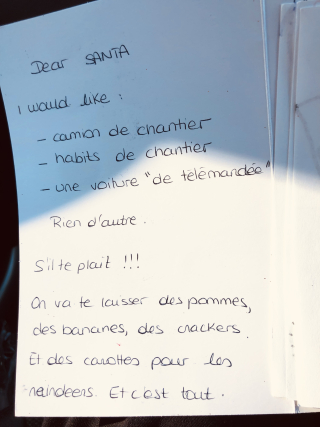 Dear SANTA
I would like :
- camion de chantier
- habits de chantier
- une voiture "de télémandée"
Rien d'autre.
S'il te plait !!!
On va te laisser des pommes,
des bananes, des crackers.
Et des carottes pour les
reindeers. Et c'est tout.